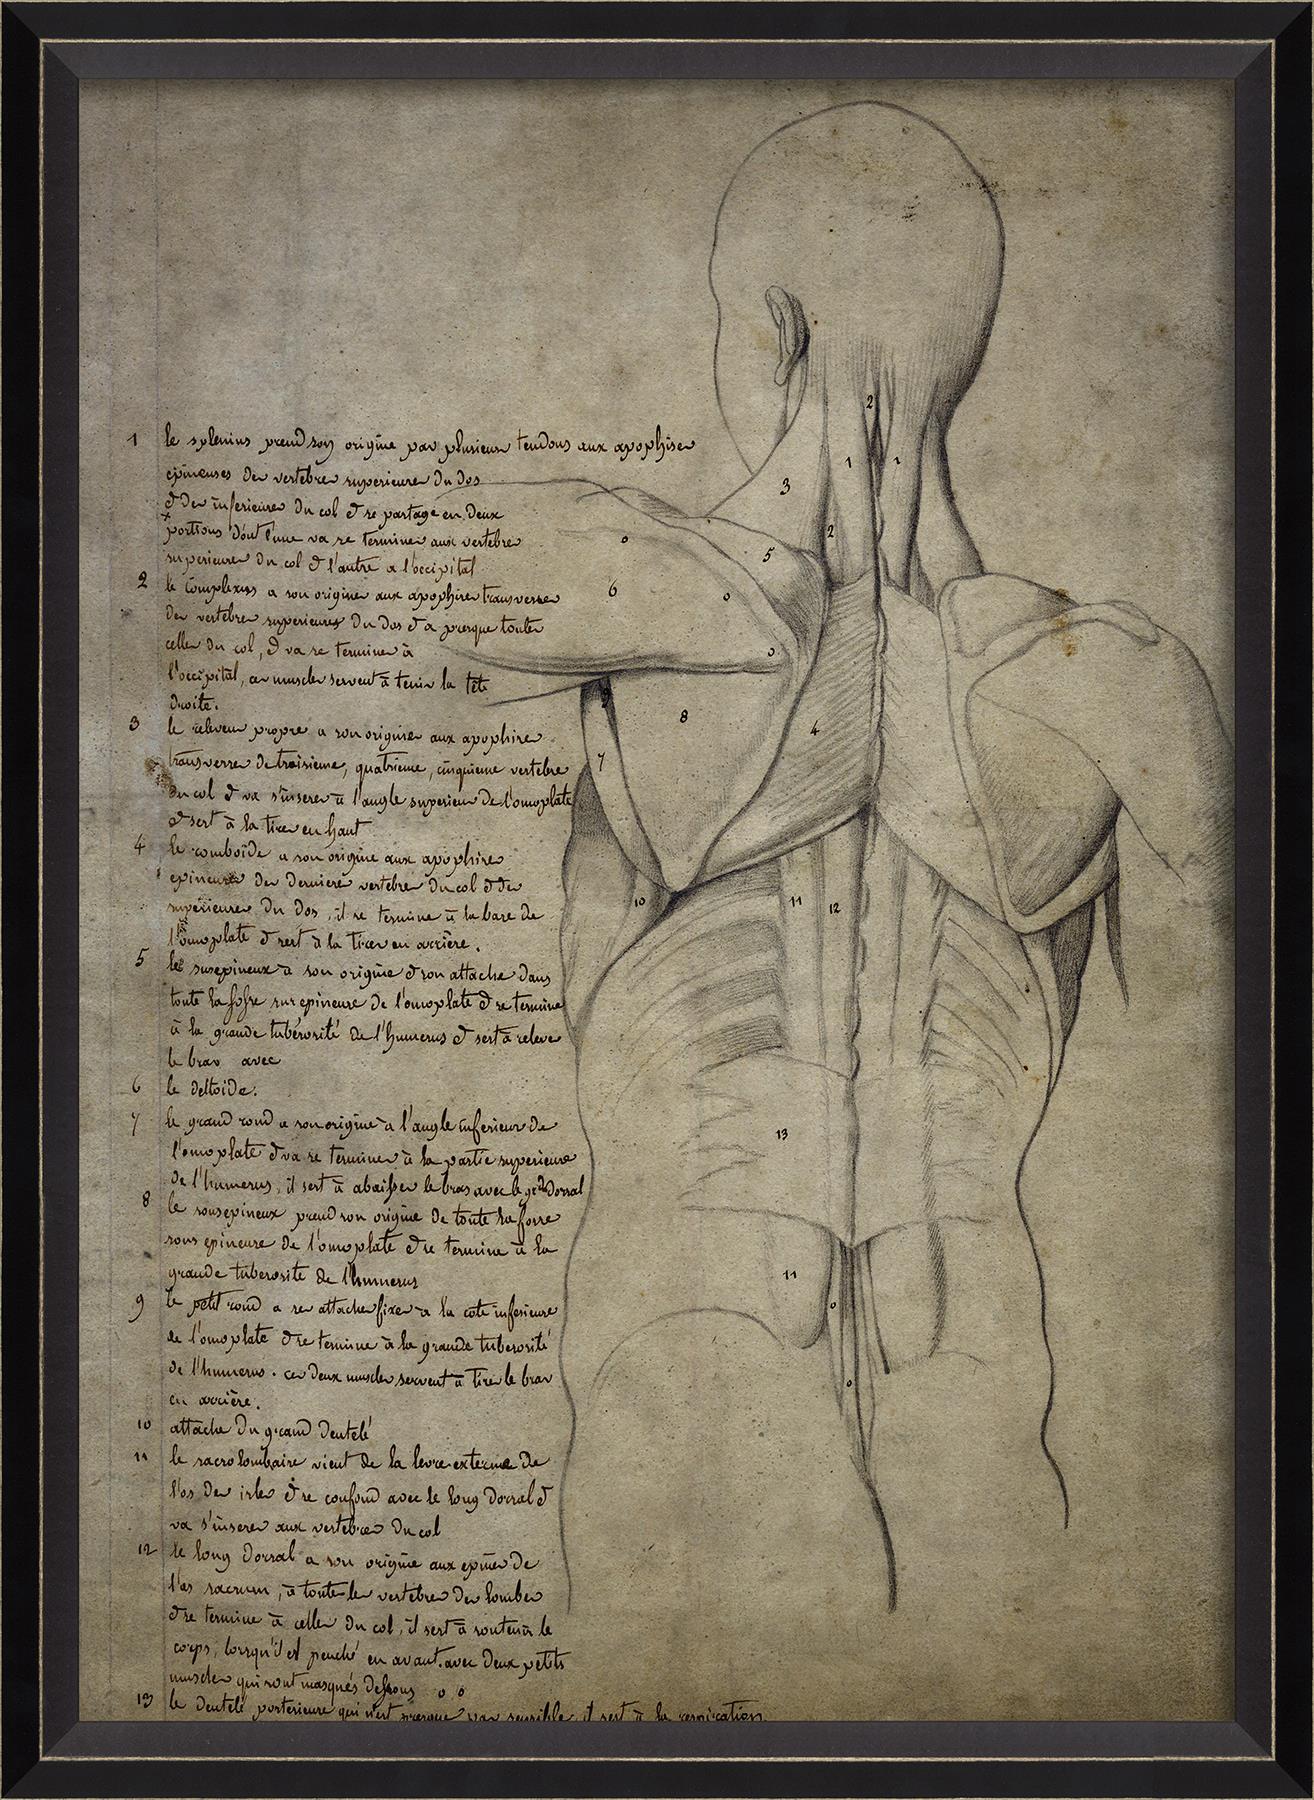 1 le splenius prend son origine par plusieurs tendons aux apophises
epineuses des vertebres superieures du dos
& des inferieures du col & se partage en deux
portions dont l'une va se terminer aux vertebres
superieures du col & l'autre a l'occipital
2 le complexus a son origine aux apophises transverses
des vertebres superieures du dos & a presque toutes
celles du col, & va se terminer à
l'occipital, ces muscles servent à tenir la tete
droite.
3 le releveur propre a son origine aux apophises
transverses de troisieme, quatrieme, cinquieme vertebre
du col & va s'inserer à l'angle superieur de l'omoplate
& sert à la tirer en haut
4 le romboïde a son origine aux apophises
epineuses des dernieres vertebres du col & des
superieures du dos, il se termine à la base de
l'omoplate & sert à la tirer en arrière.
5 le susepineux a son origine & son attache dans
toute la fosse sur epineuse de l'omoplate & se termine
à la grande tubérosité de l'humerus & sert à relever
le bras avec
6 le deltoide.
7 le grand rond a son origine à l'angle inferieur de
l'omoplate & va se terminer à la partie superieure
de l'humerus, il sert à abaisser le bras avec le grd dorsal
8 le sousepineux prend son origine de toute la fosse
sous epineuse de l'omoplate & se termine à la
grande tuberosité de l'humerus
9 le petit rond a ses attaches fixes à la cote inferieure
de l'omoplate & se termine à la grande tuberosité
de l'humerus. ces deux muscles servent à tirer le bras
en arrière.
10 attache du grand dentelé
11 le sacrolombaire vient de la levre externe de
l'os des isles & se confond avec le long dorsal &
va s'inserer aux vertebres du col
12 le long dorsal a son origine aux epines de
l'os sacrum, à toutes les vertebres des lombes
& se termine à celles du col, il sert à soutenir le
corps, lorsqu'il est penché en avant. avec deux petits
muscles qui sont masqués dessous o o
13 le dentelé posterieure qui n'est presque pas sensible, il sert à la respiration.
2
1 1
3
2
5
o
6 o
o
4
8
9
7
10 11 12
13
11
o
o